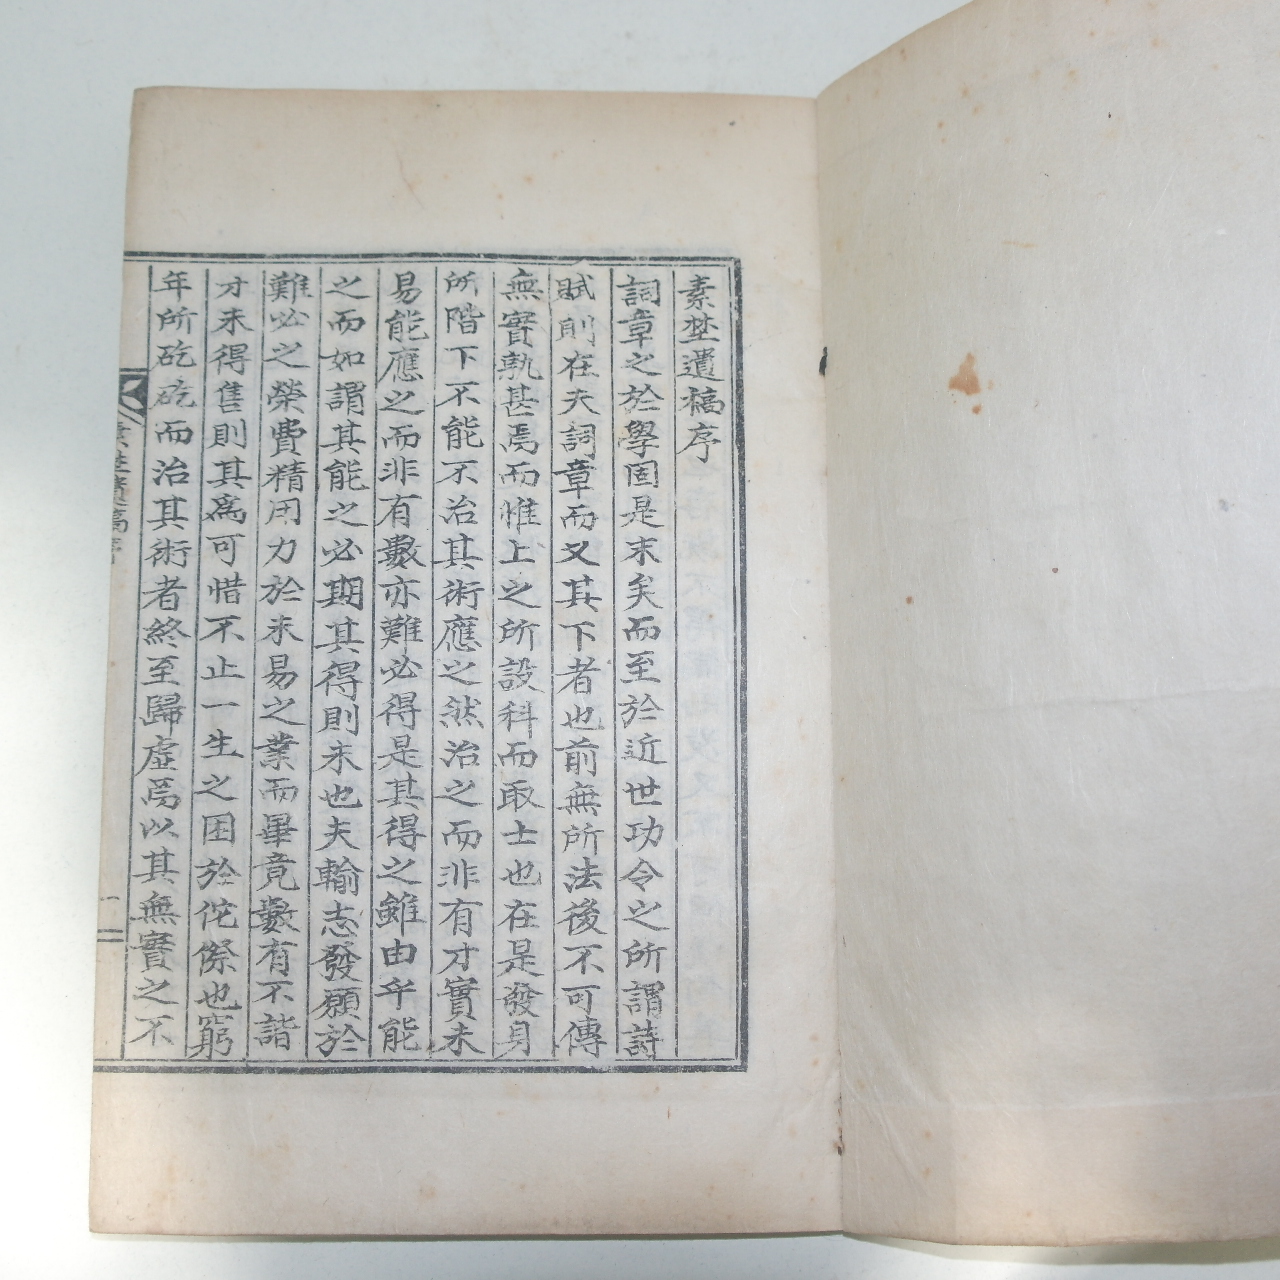 素埜遺稿序
詞章之於學固是末矣而至於近世功令之所謂詩
賦則在夫詞章而又其下者也前無所法後不可傳
無實孰甚焉而惟上之所設科而取士也在是發身
所階下不能不治其術應之然治之而非有才實未
易能應之而非有數亦難必得是其得之雖由乎能
之而如謂其能之必期其得則未也夫輸志發願於
難必之榮費精用力於未易之業而畢竟數有不諧
才未得售則其爲可惜不止一生之困於侘傺也窮
年所矻矻而治其術者終至歸虛焉以其無實之不
素埜遺稿序
一